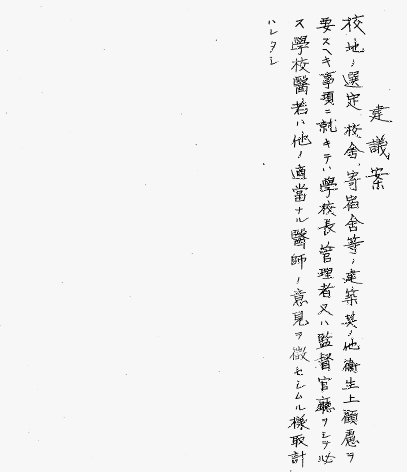 建議案
校地ノ選定校舍、寄宿舍等ノ建築其ノ他衞生上顧慮ヲ
要スヘキ事項ニ就キテハ學校長、管理者又ハ監督官廳ヲシテ必
ス學校醫若ハ他ノ適當ナル醫師ノ意見ヲ徵セシムル樣取計
ハレタシ